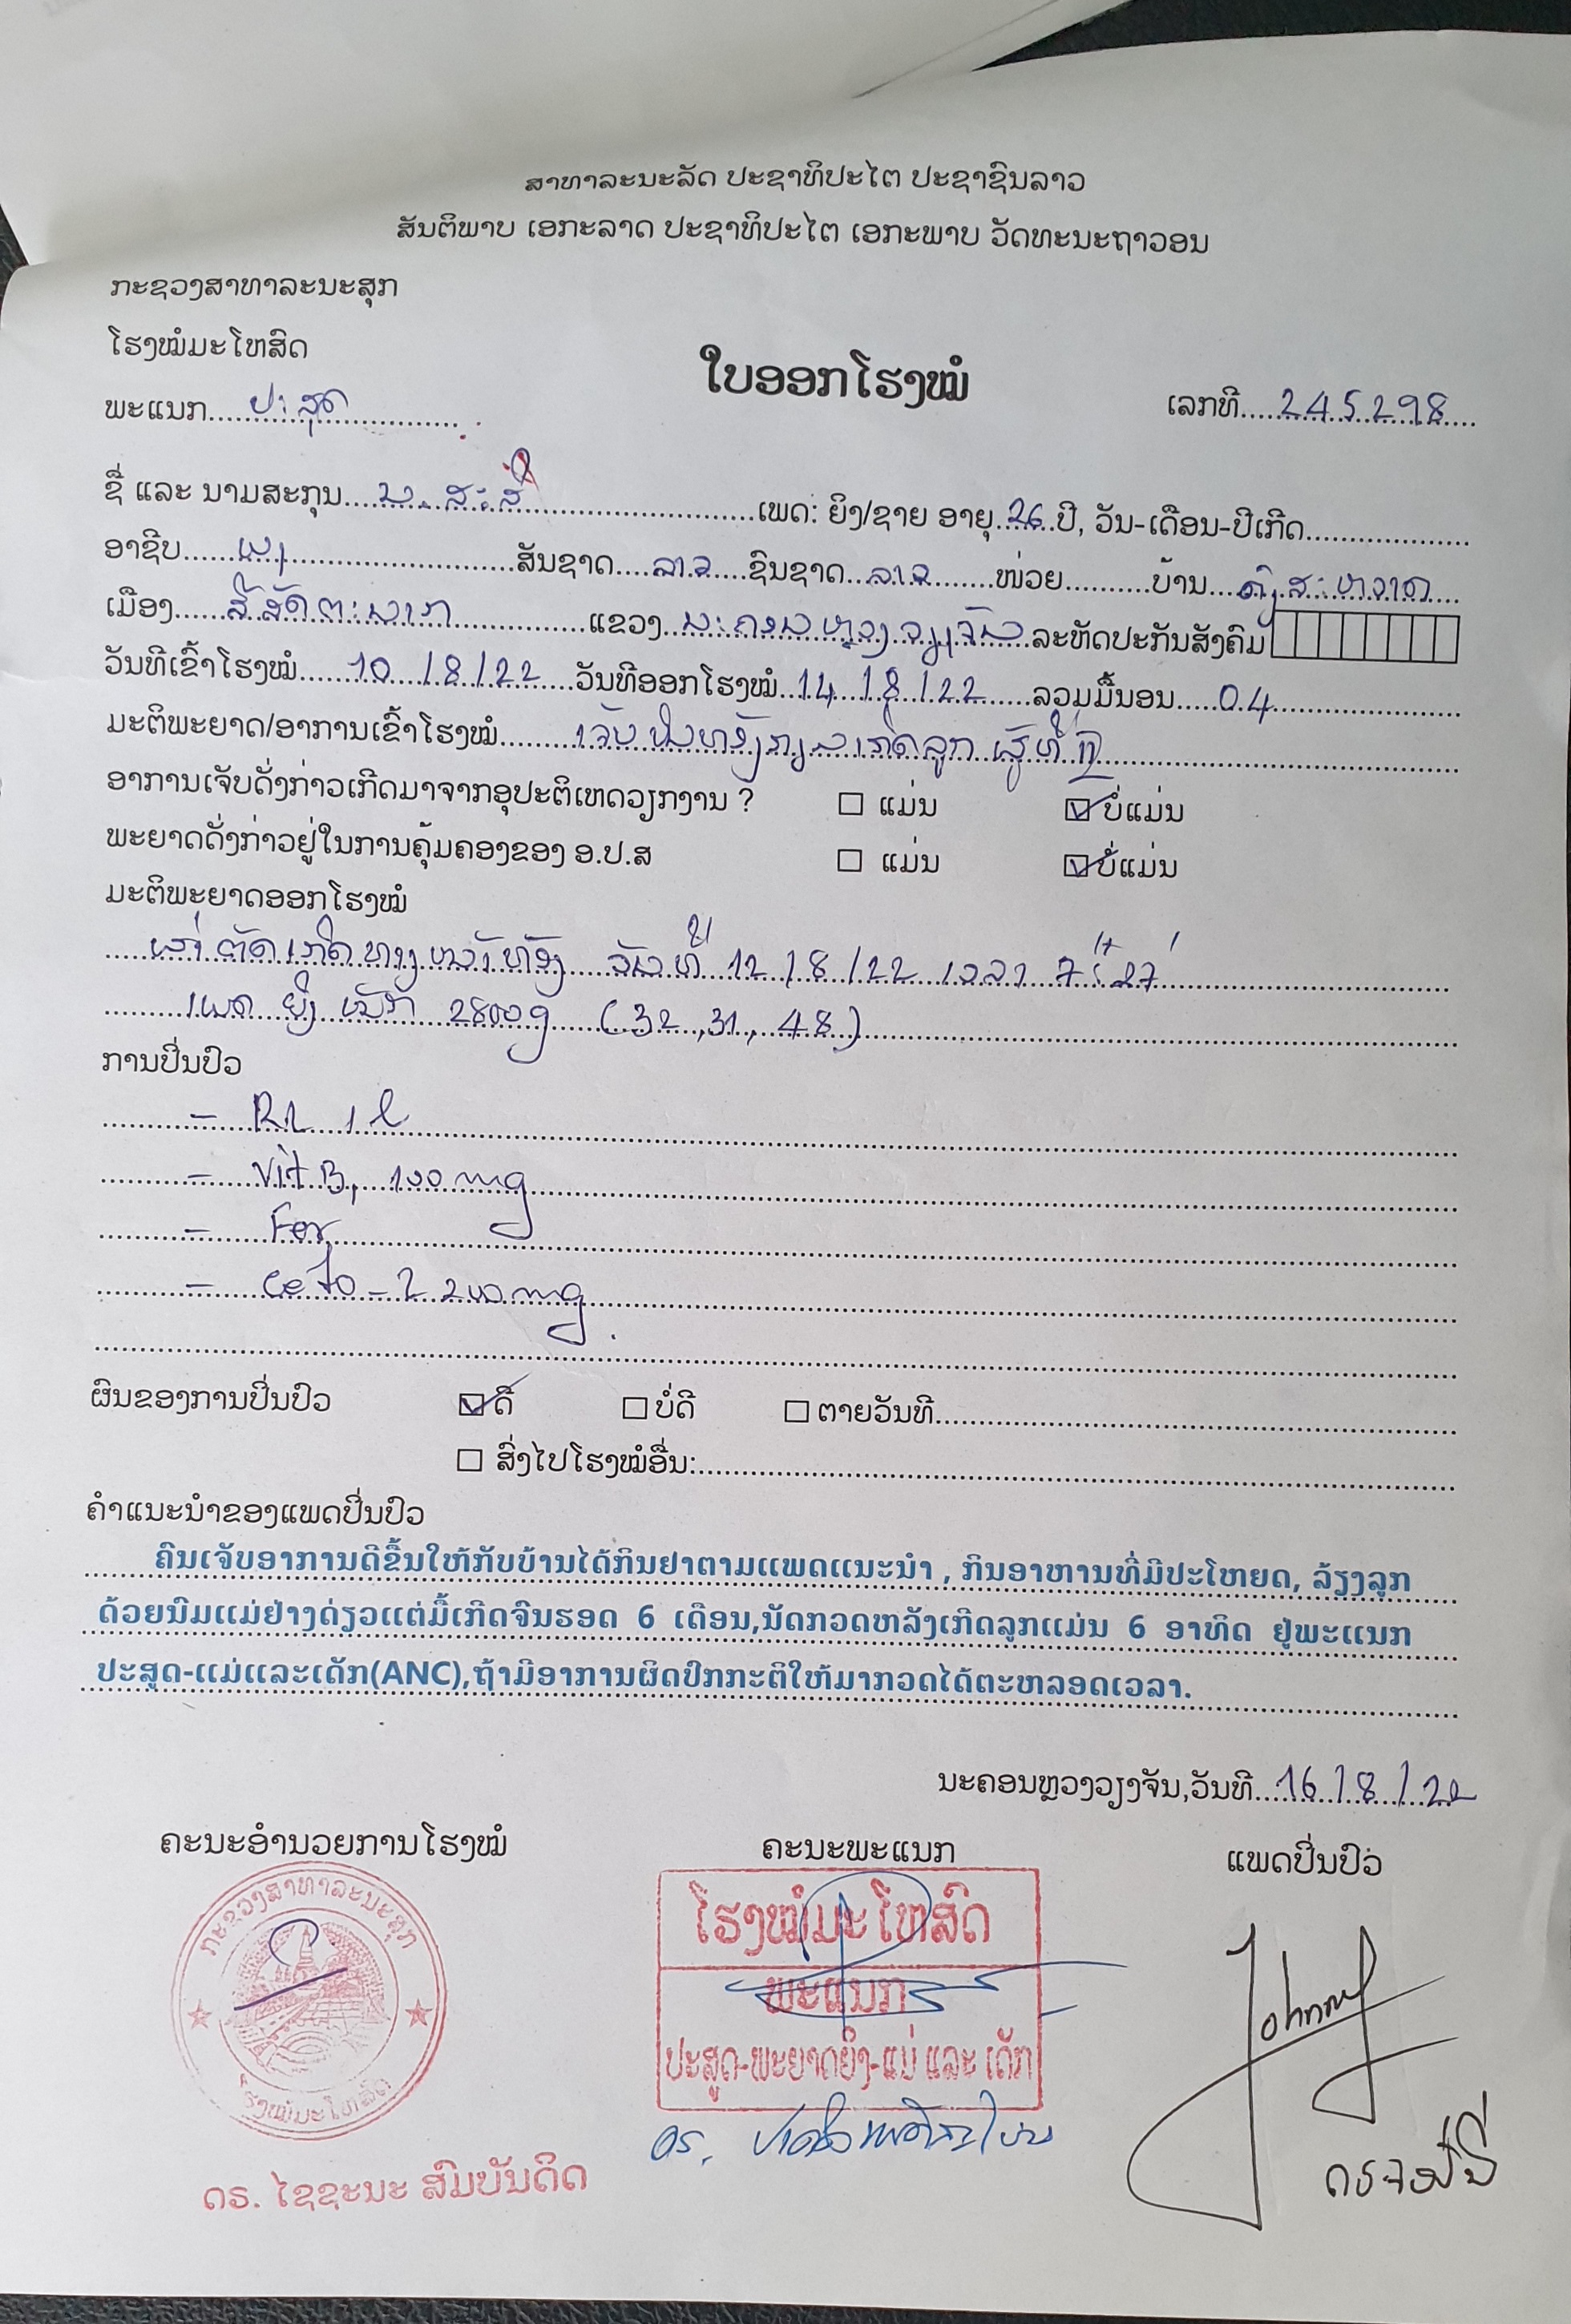 ສາທາລະນະລັດ ປະຊາທິປະໄຕ ປະຊາຊົນລາວ
ສັນຕິພາບ ເອກະລາດ ປະຊາທິປະໄຕ ເອກະພາບ ວັດທະນະຖາວອນ
ກະຊວງສາທາລະນະສຸກ
ໂຮງໝໍມະໂຫສົດ
ໃບອອກໂຮງໝໍ
ພະແນກ....ປະສູດ.... ເລກທີ....245298....
ຊື່ ແລະ ນາມສະກຸນ.... ເພດ: ຍິງ/ຊາຍ ອາຍຸ..26..ປີ, ວັນ-ເດືອນ-ປີເກີດ....
ອາຊີບ.... ສັນຊາດ....ລາວ....ຊົນຊາດ..ລາວ....ໜ່ວຍ....ບ້ານ....
ເມືອງ....ສີສັດຕະນາກ....ແຂວງ..ນະຄອນຫຼວງວຽງຈັນ..ລະຫັດປະກັນສັງຄົມ
ວັນທີເຂົ້າໂຮງໝໍ....10/8/22....ວັນທີອອກໂຮງໝໍ..14/8/22....ລວມມື້ນອນ....04....
ມະຕິພະຍາດ/ອາການເຂົ້າໂຮງໝໍ....ເຈັບ
ອາການເຈັບດັ່ງກ່າວເກີດມາຈາກອຸປະຕິເຫດວຽກງານ ? ☐ ແມ່ນ ☑ ບໍ່ແມ່ນ
ພະຍາດດັ່ງກ່າວຢູ່ໃນການຄຸ້ມຄອງຂອງ ອ.ປ.ສ ☐ ແມ່ນ ☑ ບໍ່ແມ່ນ
ມະຕິພະຍາດອອກໂຮງໝໍ
ຜ່າຕັດເກີດທາງໜ້າທ້ອງ ວັນທີ 12/8/22 ເວລາ
ເພດ ຍິງ ໜັກ 2800g (32, 31, 48)
ການປິ່ນປົວ
- RL 1 l
- Vit B1 100mg
- Fer
- 200mg
ຜົນຂອງການປິ່ນປົວ ☑ ດີ ☐ ບໍ່ດີ ☐ ຕາຍວັນທີ....
☐ ສົ່ງໄປໂຮງໝໍອື່ນ:....
ຄຳແນະນຳຂອງແພດປິ່ນປົວ
ຄົນເຈັບອາການດີຂື້ນໃຫ້ກັບບ້ານໄດ້ກິນຢາຕາມແພດແນະນຳ , ກິນອາຫານທີ່ມີປະໂຫຍດ, ລ້ຽງລູກ
ດ້ວຍນົມແມ່ຢ່າງດ່ຽວແຕ່ມື້ເກີດຈົນຮອດ 6 ເດືອນ,ນັດກວດຫລັງເກີດລູກແມ່ນ 6 ອາທິດ ຢູ່ພະແນກ
ປະສູດ-ແມ່ແລະເດັກ(ANC),ຖ້າມີອາການຜິດປົກກະຕິໃຫ້ມາກວດໄດ້ຕະຫລອດເວລາ.
ນະຄອນຫຼວງວຽງຈັນ,ວັນທີ....16/8/22
ຄະນະອຳນວຍການໂຮງໝໍ ຄະນະພະແນກ ແພດປິ່ນປົວ
ກະຊວງສາທາລະນະສຸກ
ໂຮງໝໍມະໂຫສົດ
ໂຮງໝໍມະໂຫສົດ
ພະແນກ
ປະສູດ-ພະຍາດຍິງ-ແມ່ ແລະ ເດັກ
Johnny
ດຣ ຈອນນີ່
ດຣ. ໄຊຊະນະ ສົມບັນດິດ